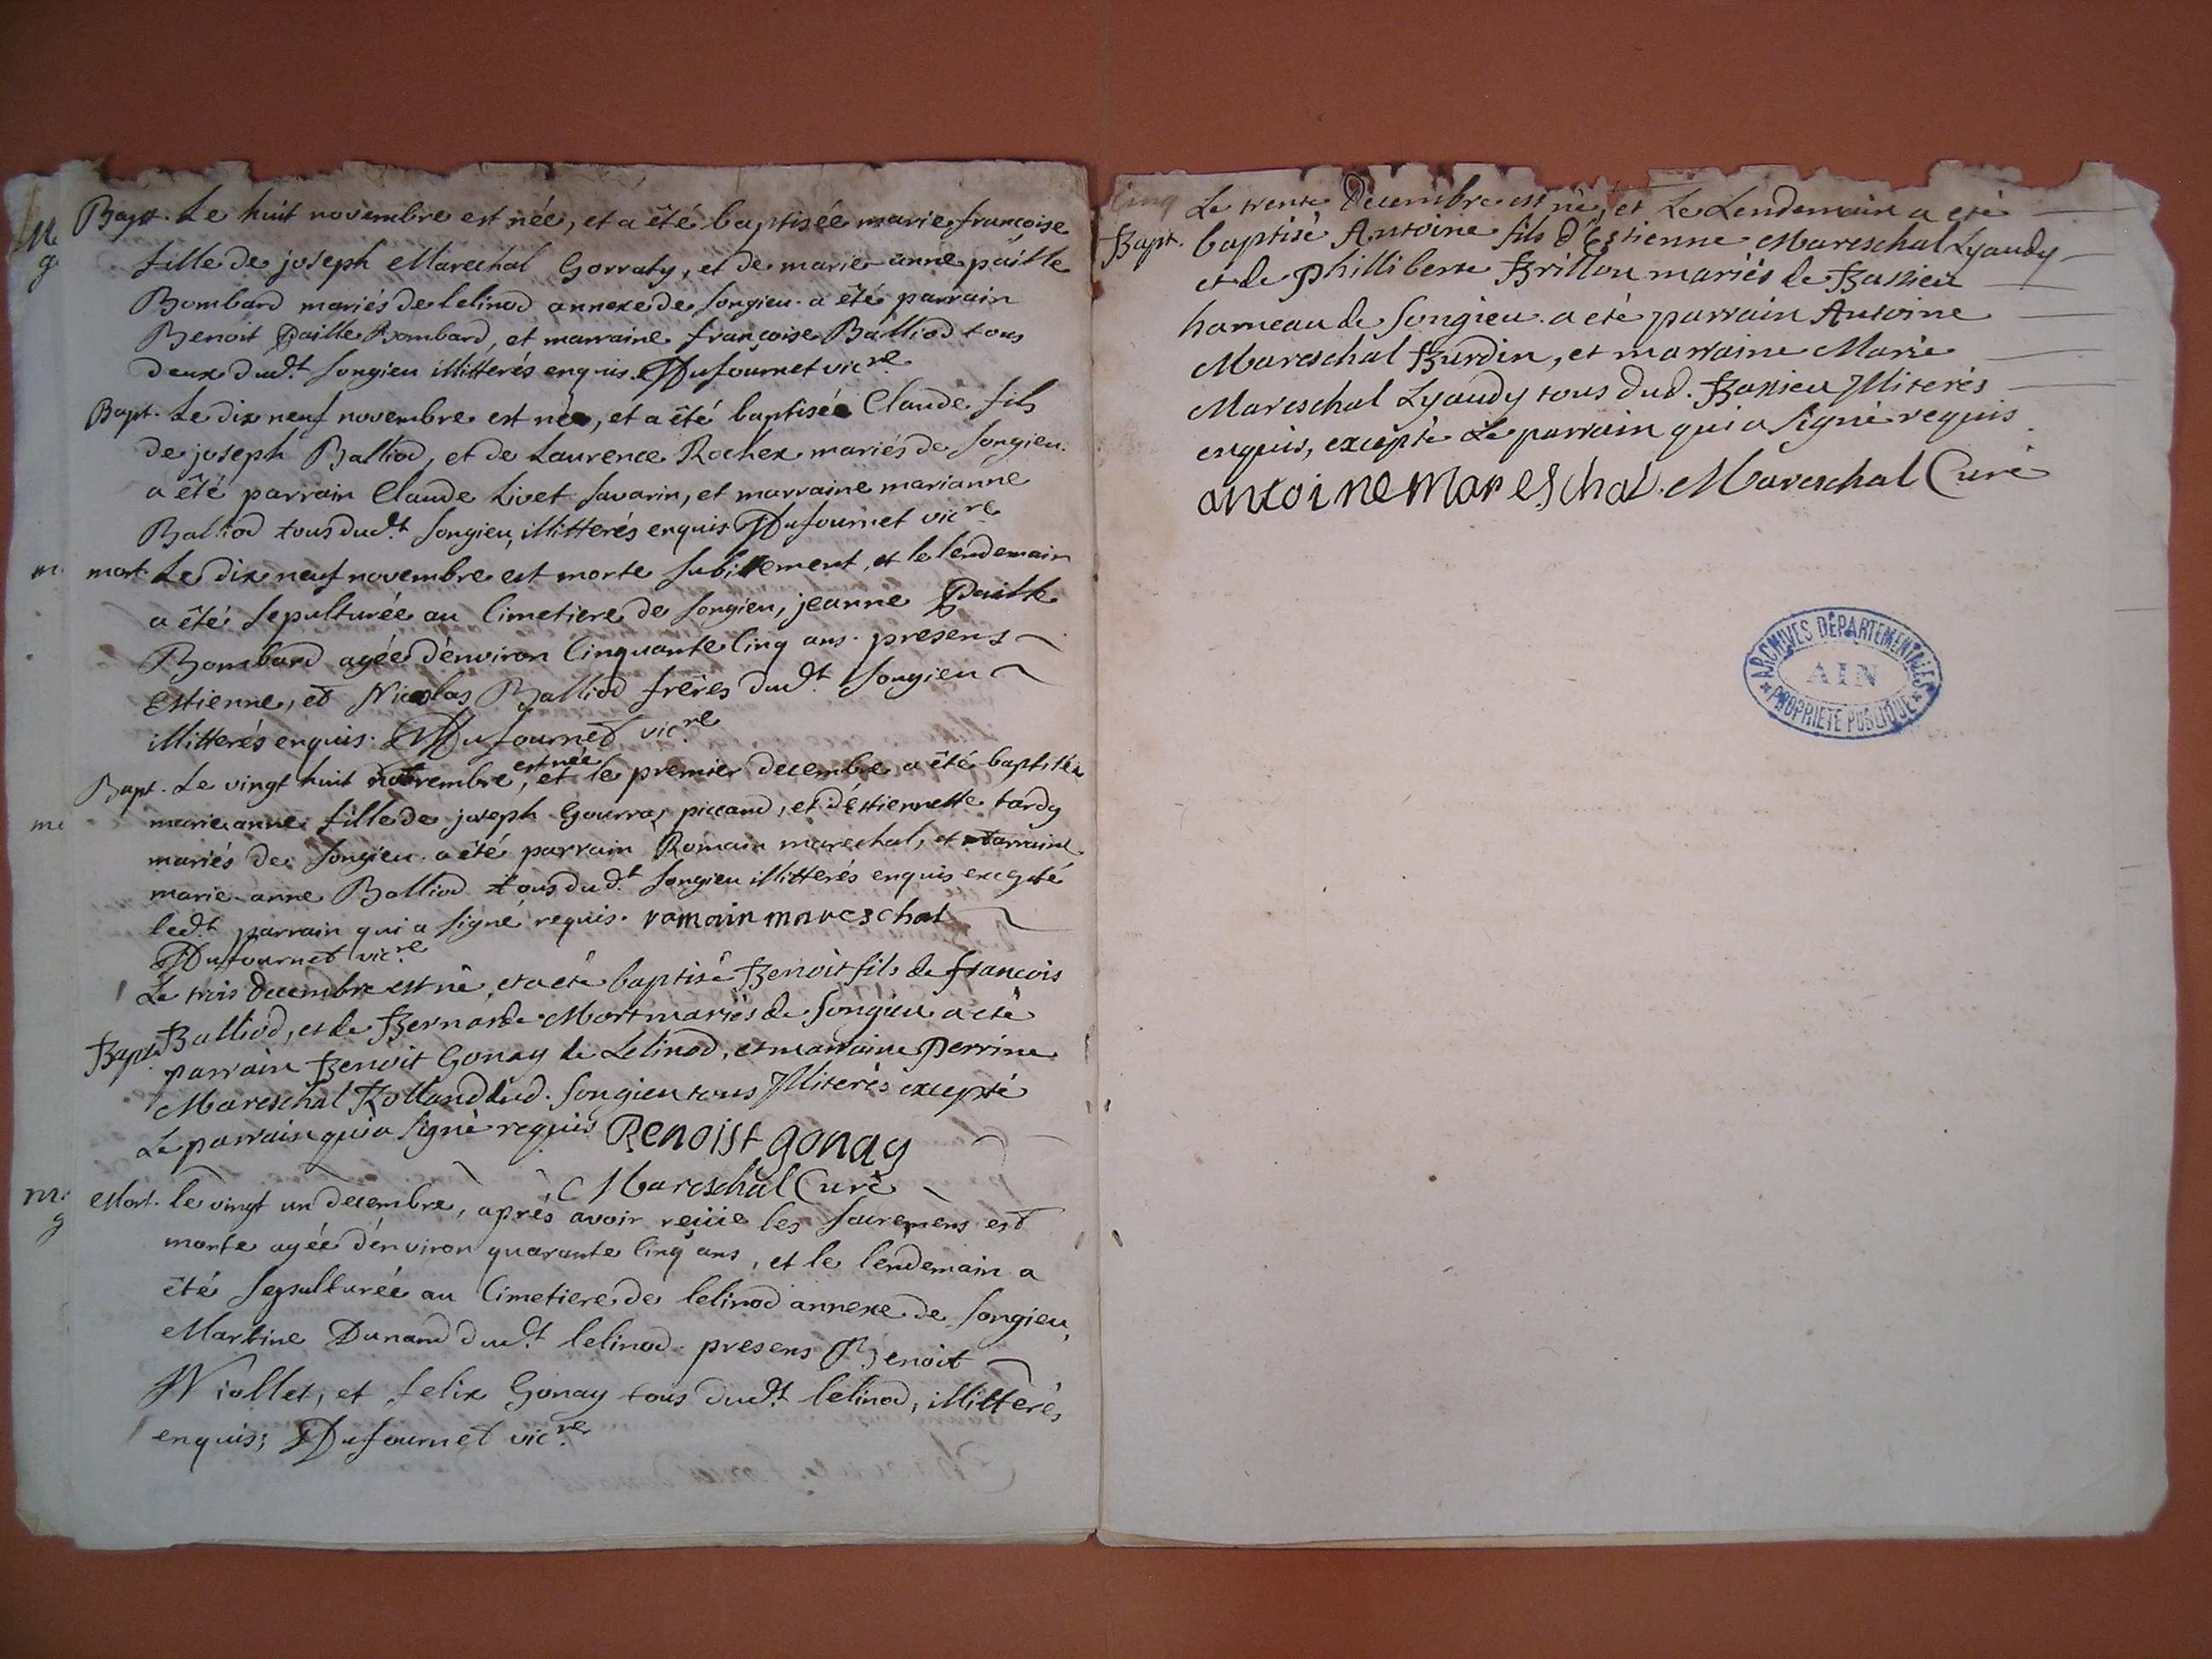 Bapt. Le huit novembre est née, et a êté baptisée marie françoise
fille de joseph Marechal Gorraty, et de marie-anne paille
Bombard mariés de lelinod annexe de songieu. a êté parrain
Benoit Paille Bombard, et marraine françoise Balliod tous
deux dud.t songieu illitterés enquis. Dufournet vic.re
Bapt. Le dix neuf novembre est née, et a êté baptisée Claude fils
de joseph Balliod, et de Laurence Rochex mariés de songieu.
a êté parrain Claude Livet savarin, et marraine marianne
Balliod tous dud.t songieu, illitterés enquis Dufournet vic.re
mort. Le dix neuf novembre est morte subitement, et le lendemain
a êté sepulturée au Cimetiere de songieu, jeanne Paille
Bombard agée d'environ Cinquante Cinq ans. presens
Estienne, et Nicolas Balliod frères dud.t songieu
illitterés enquis. Dufournet vic.re
Bapt. Le vingt huit novembre est née, et le premier decembre a êté baptisée
marie anne fille de joseph Gourra, piccand, et d'Estiennette tardy
mariés de songieu. a êté parrain Romain marechal, et marraine
marie-anne Balliod tous dud.t songieu illitterés enquis excepté
led.t parrain qui a signé requis. romain mareschal
Dufournet vic.re
Le trois decembre est né, et a eté baptisé Benoit fils de francois
Bapt. Balliod, et de Bernarde Mort mariés de Songieu a eté
parrain Benoit Gonay de Lelinod, et marraine Perrine
Mareschal Rolland dud. Songieu tous Illiterés excepté
Le parrain qui a signé requis Benoist gonay
Mareschal Curé
Mort. le vingt un decembre, après avoir reçüe les sacremens est
morte agée d'environ quarante Cinq ans, et le lendemain a
êté sepulturée au Cimetiere de lelinod annexe de songieu,
Martine Dunand dud.t lelinod. presens Benoit
Niollet, et felix Gonay tous dud.t lelinod, illitterés
enquis; Dufournet vic.re
Le trente Decembre est né, et Le Lendemain a eté
Bapt. baptisé Antoine fils d'Estienne Mareschal Lyaudy
et de Philliberte Brillon mariés de Bassieu
hameau de Songieu. a eté parrain Antoine
Mareschal Burdin, et marraine Marie
Mareschal Lyaudy tous dud. Bassieu Illiterés
enquis, excepté Le parrain qui a signé requis
antoine mareschal. Mareschal Curé
ARCHIVES DÉPARTEMENTALES
AIN
PROPRIÉTÉ PUBLIQUE